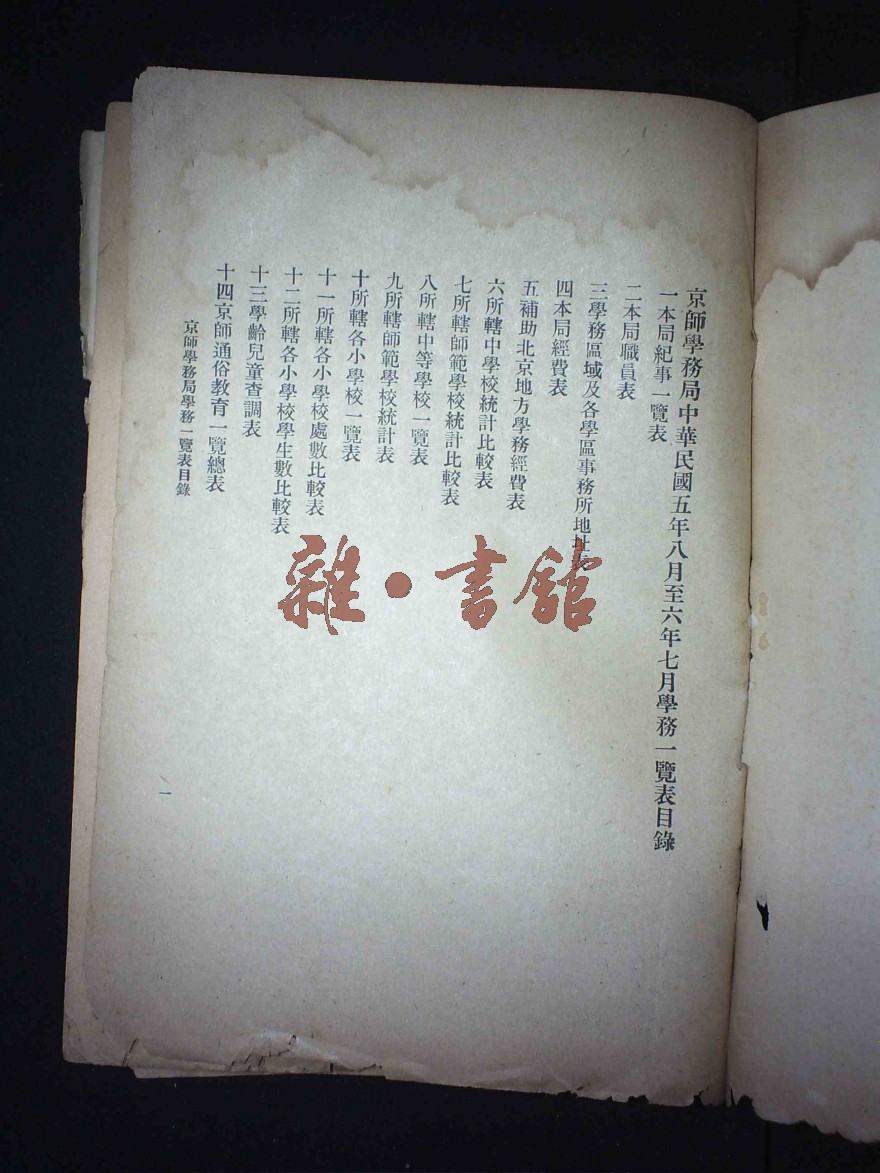 京師學務局中華民國五年八月至六年七月學務一覽表目錄
一本局紀事一覽表
二本局職員表
三學務區域及各學區事務所地址表
四本局經費表
五補助北京地方學務經費表
六所轄中學校統計比較表
七所轄師範學校統計比較表
八所轄中等學校一覽表
九所轄師範學校統計表
十所轄各小學校一覽表
十一所轄各小學校處數比較表
十二所轄各小學校學生數比較表
十三學齡兒童查調表
十四京師通俗教育一覽總表
京師學務局學務一覽表目錄
一
雜·書館